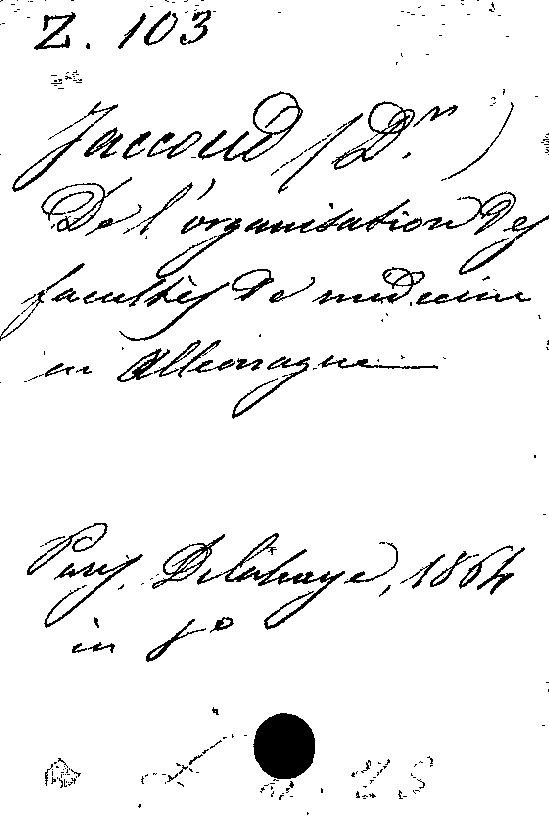 Z. 103
Jaccoud (Dr.)
De l'organisation des
facultés de médecine
en Allemagne
Paris, Delahaye, 1864
in 8º